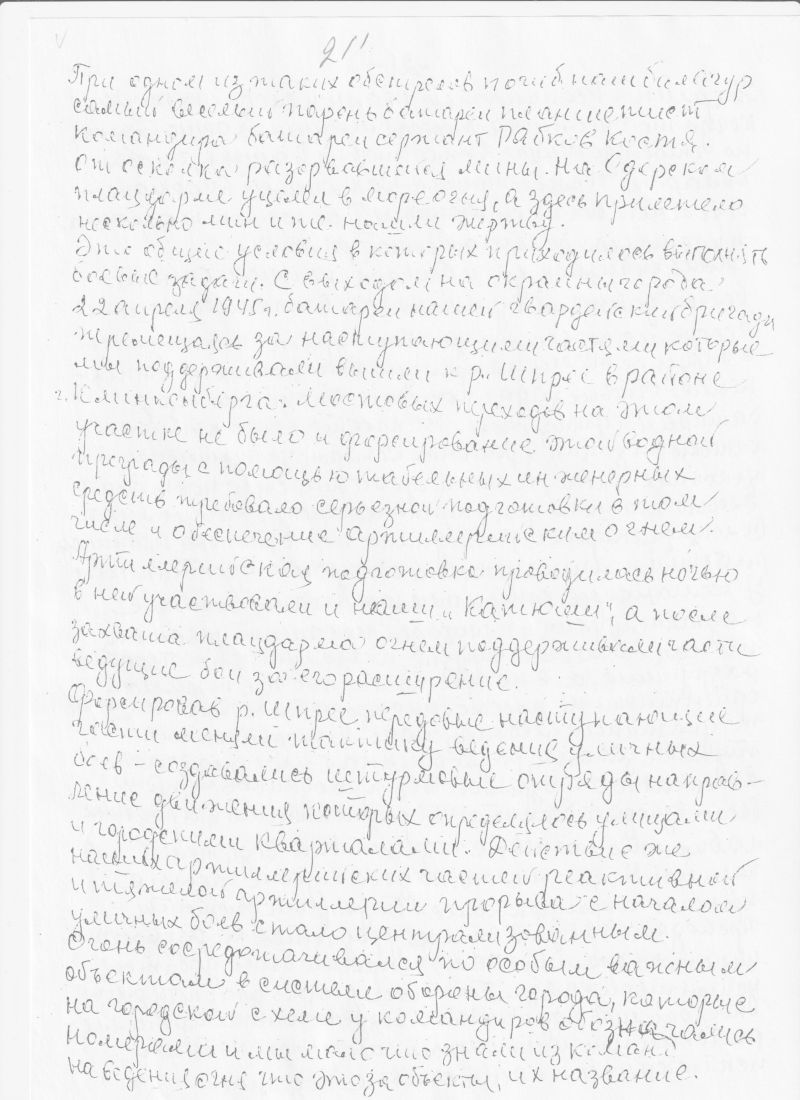 21
При одном из таких обстрелов погиб наш балагур
самый веселый парень батареи планшетист
командира батареи сержант Рабков Костя.
От осколка разорвавшейся мины. На Одерском
плацдарме уцелел в море огня, а здесь прилетело
несколько мин и те нашли жертву.
Это общие условия в которых приходилось выполнять
боевые задачи. С выходом на окраины города
22 апреля 1945 г. батареи нашей гвардейской бригады
перемещаясь за наступающими частями которые
мы поддерживали вышли к р. Шпрее в районе
г. Клинкенберга. Мостовых переходов на этом
участке не было и форсирование этой водной
преграды с помощью табельных инженерных
средств требовало серьезной подготовки в том
числе и обеспечение артиллерийским огнем.
Артиллерийская подготовка проводилась ночью
в ней участвовали и наши "Катюши", а после
захвата плацдарма огнем поддерживали части
ведущие бои за его расширение.
Форсировав р. Шпрее передовые наступающие
части меняли тактику ведения уличных
боев - создавались штурмовые отряды направ-
ление движения которых определялось улицами
и городскими кварталами. Действие же
наших артиллерийских частей реактивной
и тяжелой артиллерии прорыва с началом
уличных боев стало централизованным.
Огонь сосредотачивался по особым важным
объектам в системе обороны города, которые
на городской схеме у командиров обозначались
номерами и мы мало что знали из команд
на ведения огня что это за объекты, их название.